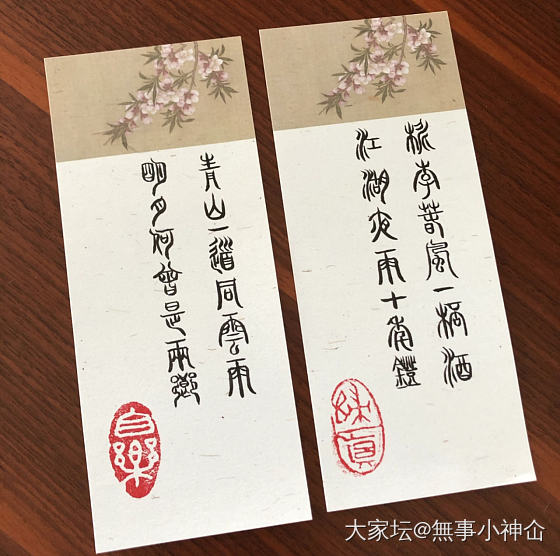 桃李春風一桮酒
江湖夜雨十年鐙
青山一道同雲雨
明月何曾是兩鄉
自樂
大家坛@無事小神仚